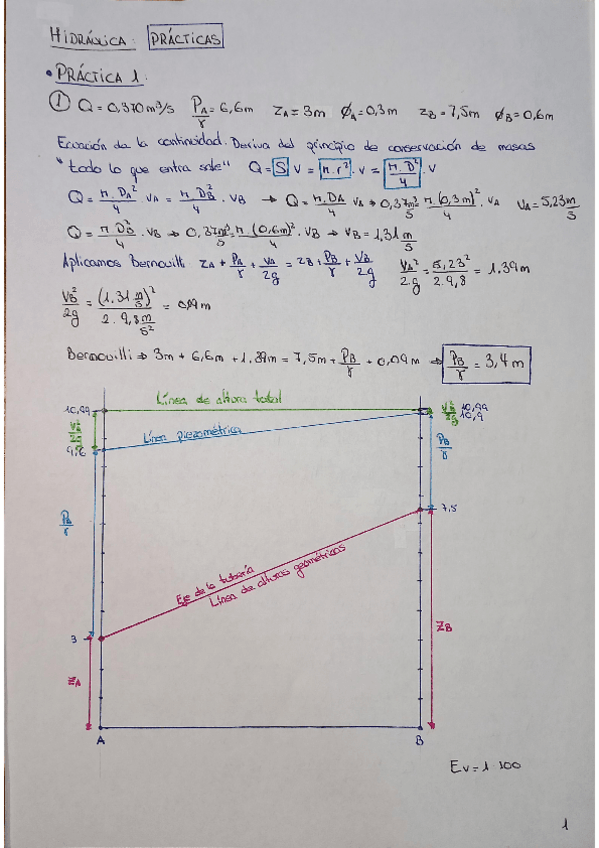 HIDRÁULICA: PRÁCTICAS
• PRÁCTICA 1:
① Q = 0,370 m³/s P_A/γ = 6,6m Z_A = 3m φ_A = 0,3m Z_B = 7,5m φ_B = 0,6m
Ecuación da la continuidad. Deriva del principio de conservación de masas
"todo lo que entra sale" Q = S · V = π·r² · V = π·D²/4 · V
Q = π·D_A²/4 · V_A = π·D_B²/4 · V_B → Q = π·D_A/4 V_A → 0,37 m³/s = π·(0,3m)²/4 · V_A V_A = 5,23 m/s
Q = π D_B²/4 · V_B ⇒ 0,37 m³/s = π·(0,6m)²/4 · V_B ⇒ V_B = 1,31 m/s
Aplicamos Bernouilli: Z_A + P_A/γ + V_A/2g = Z_B + P_B/γ + V_B/2g V_A²/2·g = 5,23²/2·9,8 = 1,39m
V_B²/2g = (1,31 m/s)²/2·9,8 m/s² = 0,09m
Bernouilli ⇒ 3m + 6,6m + 1,39m = 7,5m + P_B/γ + 0,09m ⇒ P_B/γ = 3,4m
Línea de altura total
10,99
V_B²/2g 10,99
10,9
V_A²/2g
Línea piezométrica
9,6
P_B/γ
7,5
P_B/γ
Eje de la tubería
Línea de alturas geométricas
3
Z_B
Z_A
A B
Ev = 1:100
1